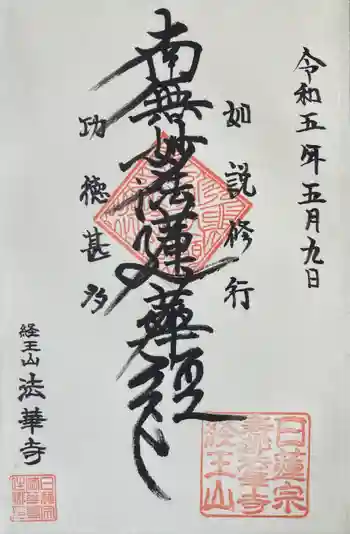 令和五年五月九日
如説修行
南無妙法蓮華経
功徳甚多
経王山
法華寺
日蓮宗
法華寺
経王山